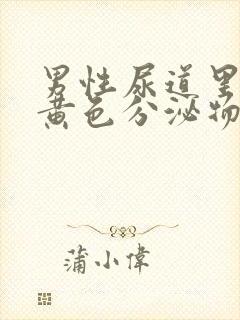 男性尿道里
黄色分泌物
蒲小偉